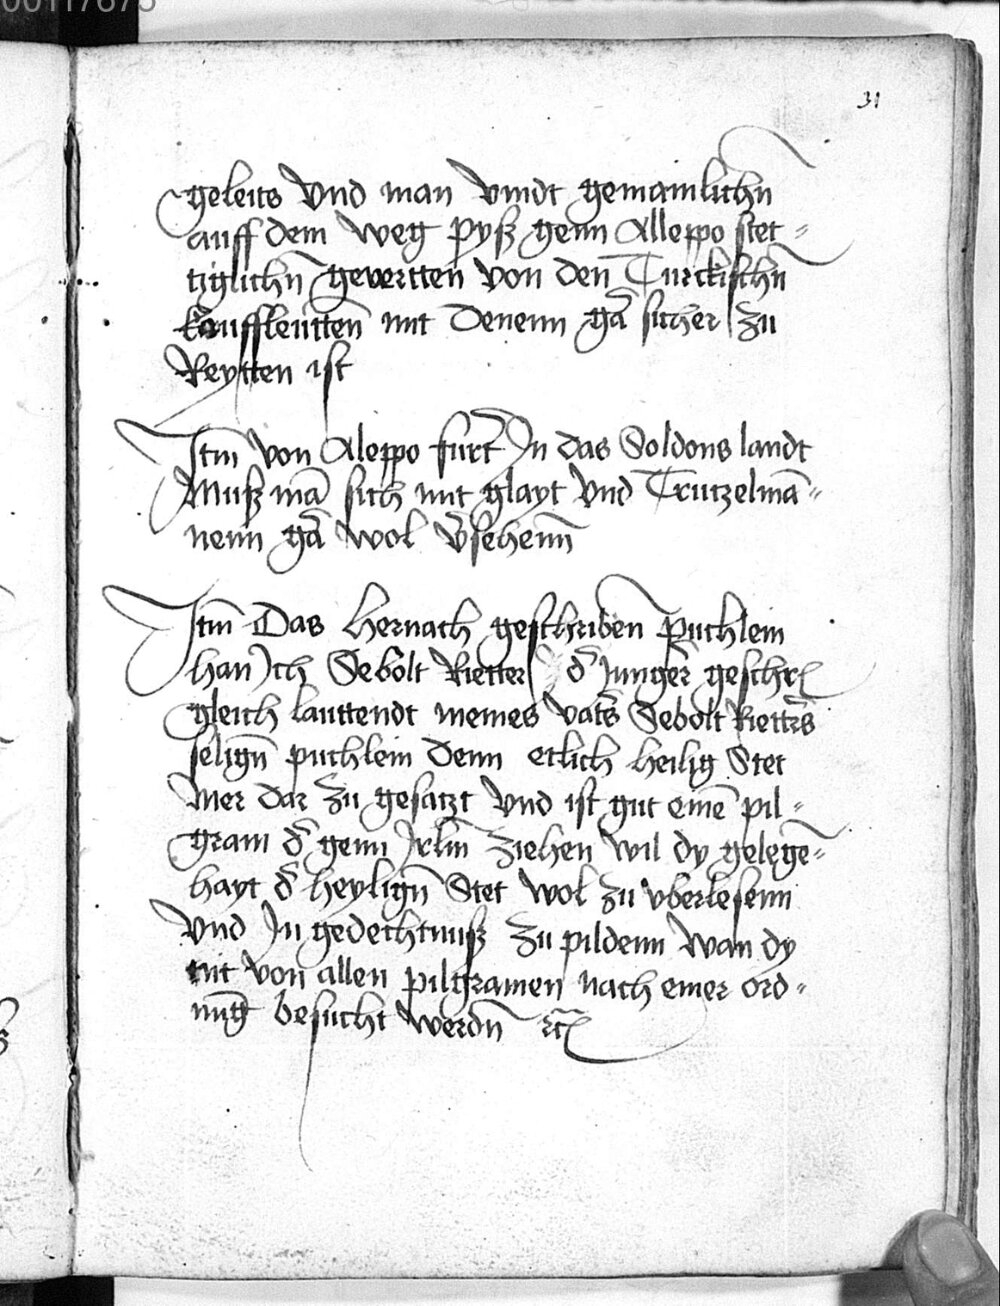 00117675
31
geleits vnd man vindt gemainlichn
auff dem weg pyß genn Alleppo stet-
tiglichn gevertten von den Turckischn
kauffleutten mit denenn gar̄ sicher zu
Reytten ist
Itm̄ von Aleppo furt In das Soldons landt
Muß mā sich mit glayt vnd Trutzelmā-
nenn gar̄ wol v̄sehenn
Itm̄ Das hernach geschriben puchlein
han Ich Sebolt Rietter d̄ Junger geschr
gleich lauttendt meines vats̄ Sebolt Rietters
selign̄ puchlein denn etlich heilig Stet
Mer dar zu gesatzt vnd ist gut einē pil-
gram d̄ genn Jrlm̄ ziehen wil dy gelegē-
hayt d̄ heylign̄ Stet wol zu vberlesenn
vnd In gedechtnuß zu pildenn wan dy
mit von allen pilgramen nach einer ord-
nūg besucht werdn̄ rc̄